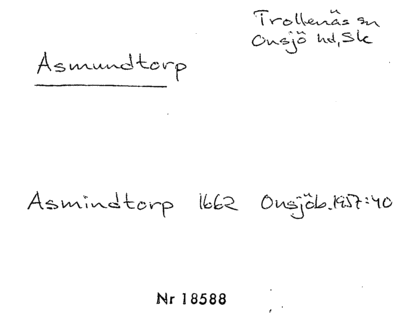 Trollenäs sn
Onsjö hd, Sk
Asmundtorp
Asmindtorp 1662 Onsjöb. 1957:40
Nr 18588